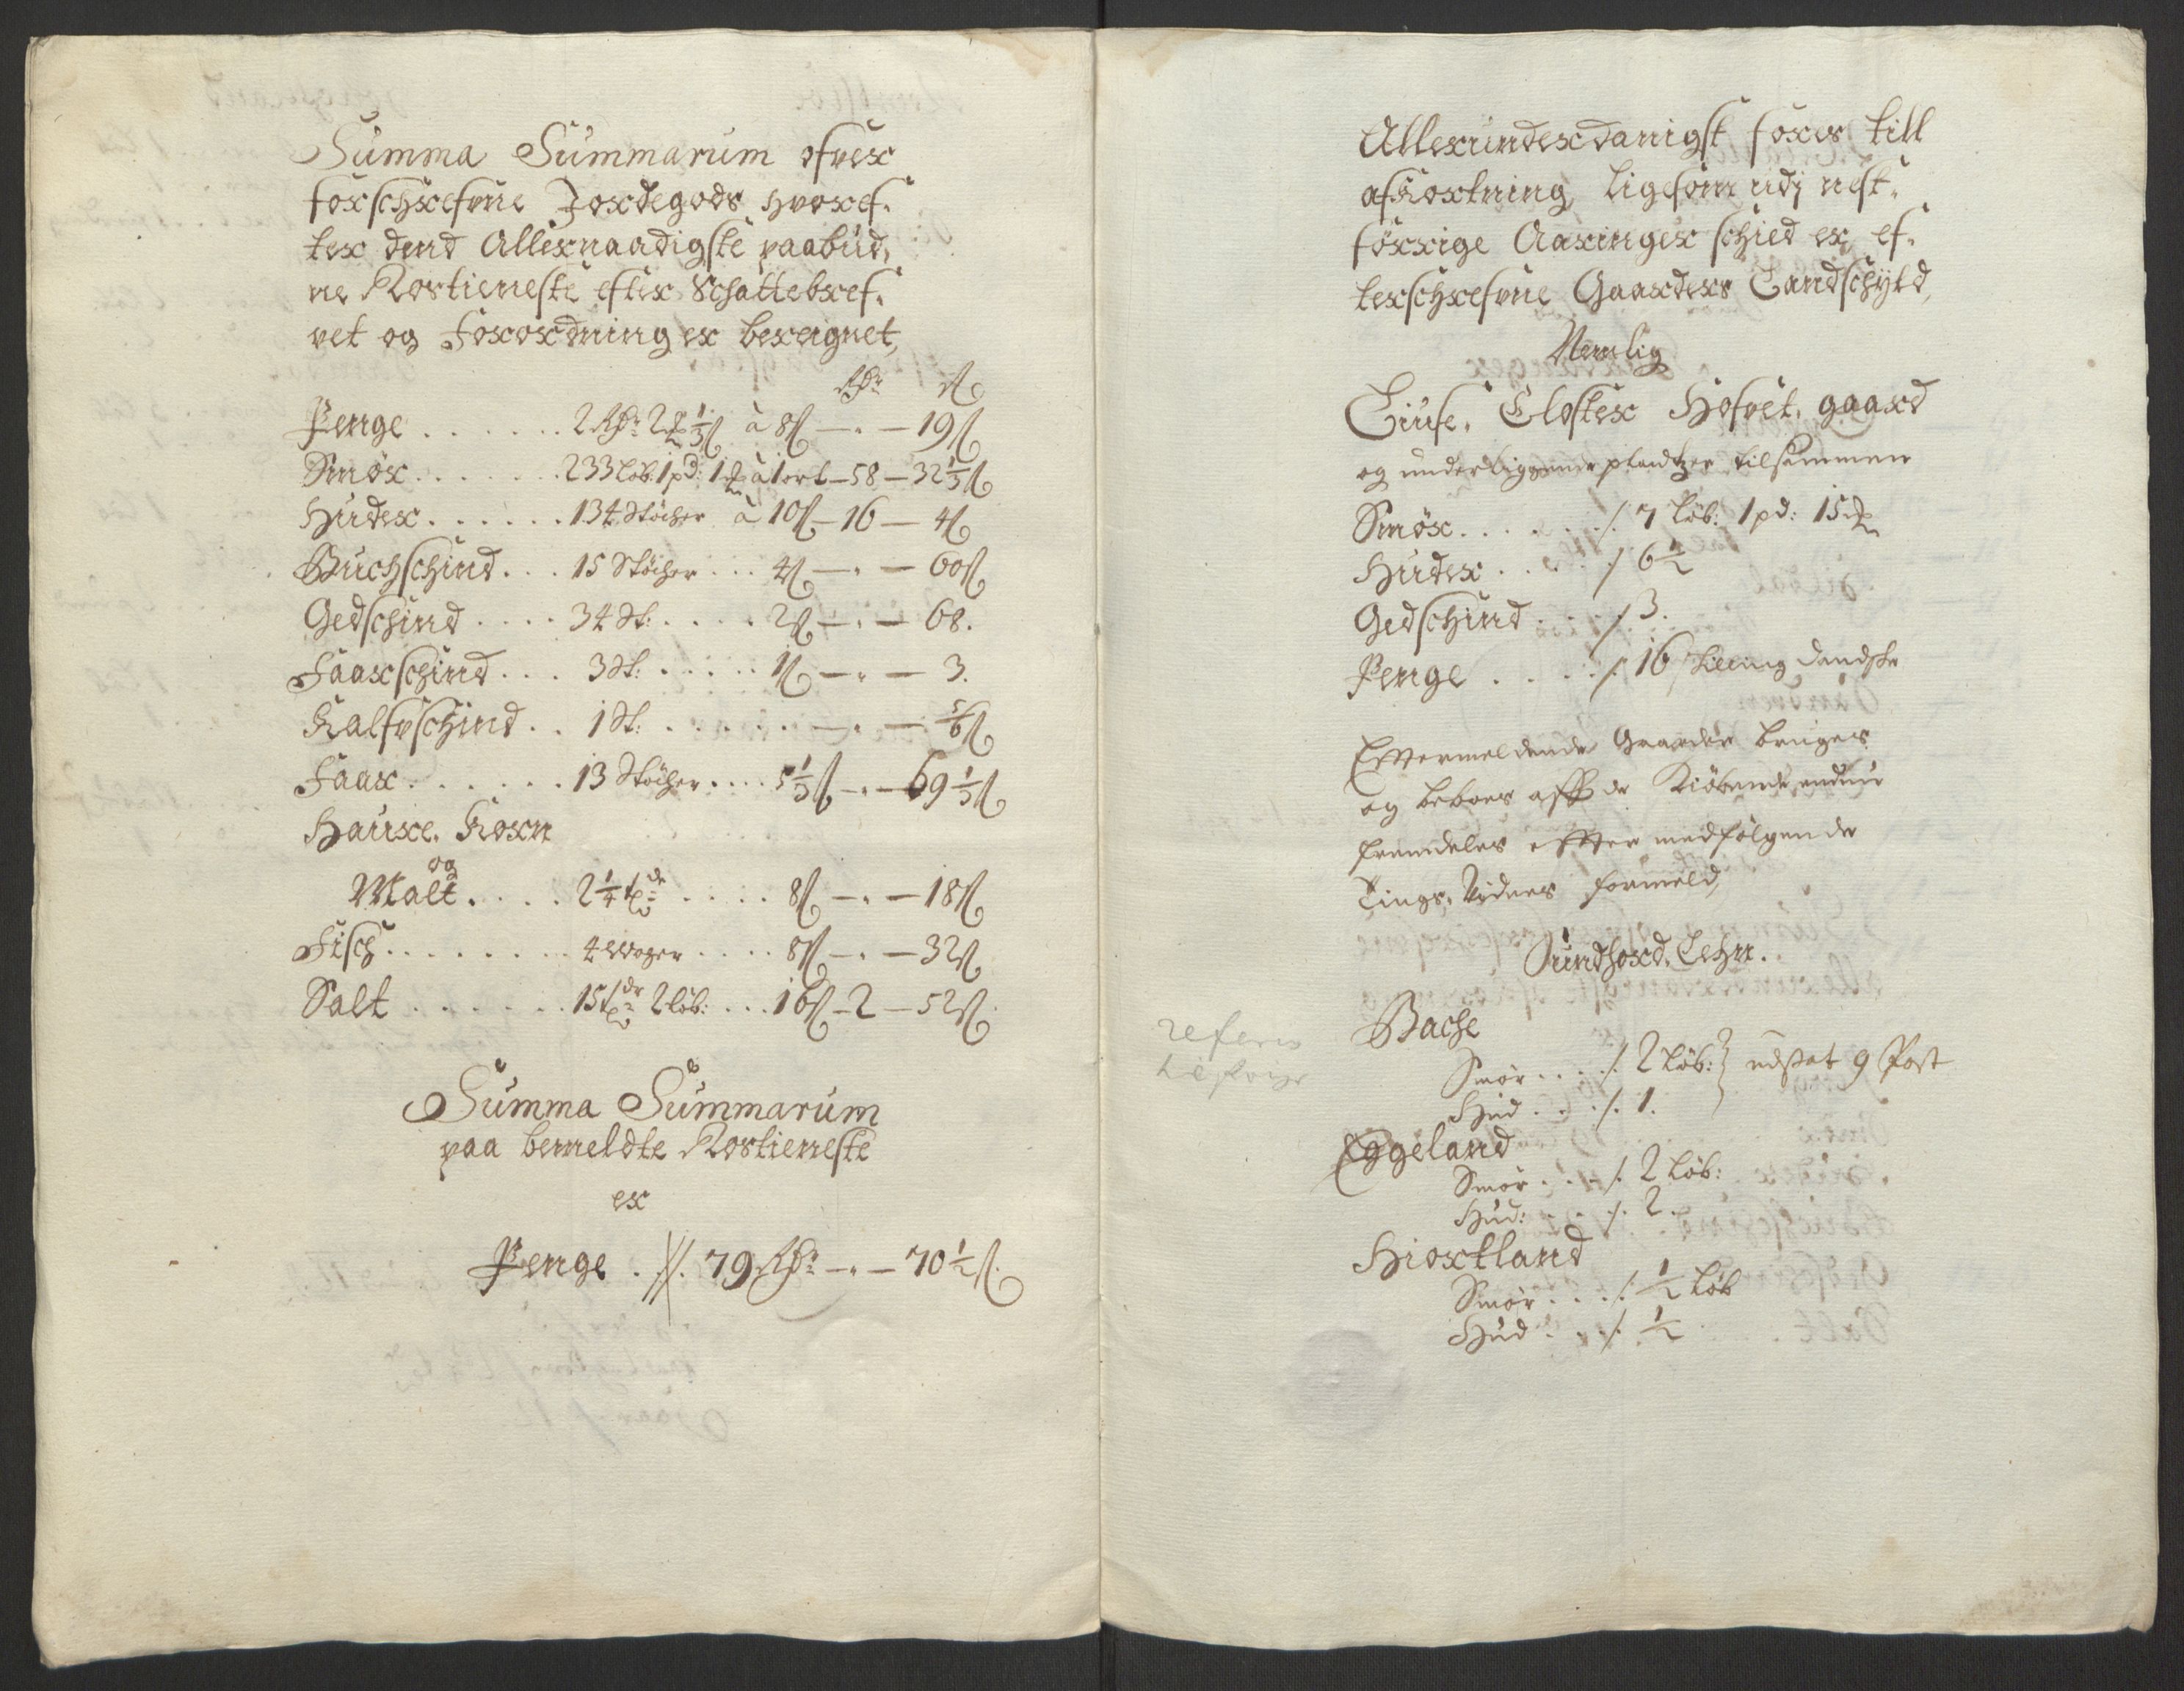 Summa Summarum ofver
forschrefvne Jordegods hvoref-
ter dend Allernaadigste paabud,
ne Rostieneste efter Schattebref-
vet og Forordning er bereignet,
Rdr ß
Penge . . . . . . 2 Rdr 2 ⅓ ß à 8ß — " — 19ß
Smør . . . . . . 233 Løb: 1 pd: 1 à 1 ort — 58 — 32⅓ß
Huder . . . . . . 134 Støcher à 10ß — 16 — 4ß
Buchschind . . . 15 Støcher . . . 4ß — " — 60ß
Gedschind . . . . 34 St: . . . . . 2ß — " — 68.
Faarschind . . . 3 St: . . . . . 1ß — " — 3.
Kalfvschind . . 1 St: . . . . . . — " — 5/6ß
Faar . . . . . . 13 Støcher . . . . 5⅓ß — " — 69⅓ß
Haure- Korn
og
Malt . . . . 2¼ tdr . . . . . 8ß — " — 18ß
Fisch . . . . . . . . 4 Woger . . . . 8ß — " — 32ß
Salt . . . . . . 15 tdr 2 Løb: . . . 16ß — 2 — 52ß.
Summa Summarum
paa bemeldte Rostieneste
er
Penge . //. 79 Rdr — " — 70½ß.
Allerunderdanigst føres till
afkortning, ligesom udj nest-
forrige Aaringer schied er, ef-
terschrefvne Gaarders Landschyld,
Nemlig
Liuse- Closter Hofvet- gaard
og underliggende pladtzer tilsammen
Smør . . . . . ./. 7 Løb: 1 pd: 15
Huder . . . . . / 6½
Gedschind . . . ./ 3.
Penge . . . . ./. 16 skilling dandske
Effttermeldende Gaarder bruges
og beboes aff de Kiøbende endnu
fremdeles effter medfølgende
Tings- Vidnes formeld,
Sundhord- Lehn.
Bache
Smør . . . ./. 2 Løb: } udsat 9 Post
Hud . . . ./. 1.
Eggeland
Smør . . . ./. 2 Løb:
Hud: . . . ./. 2.
Hiortland
Smør . . . ./. ½ Løb
Hud . . . ./. ½